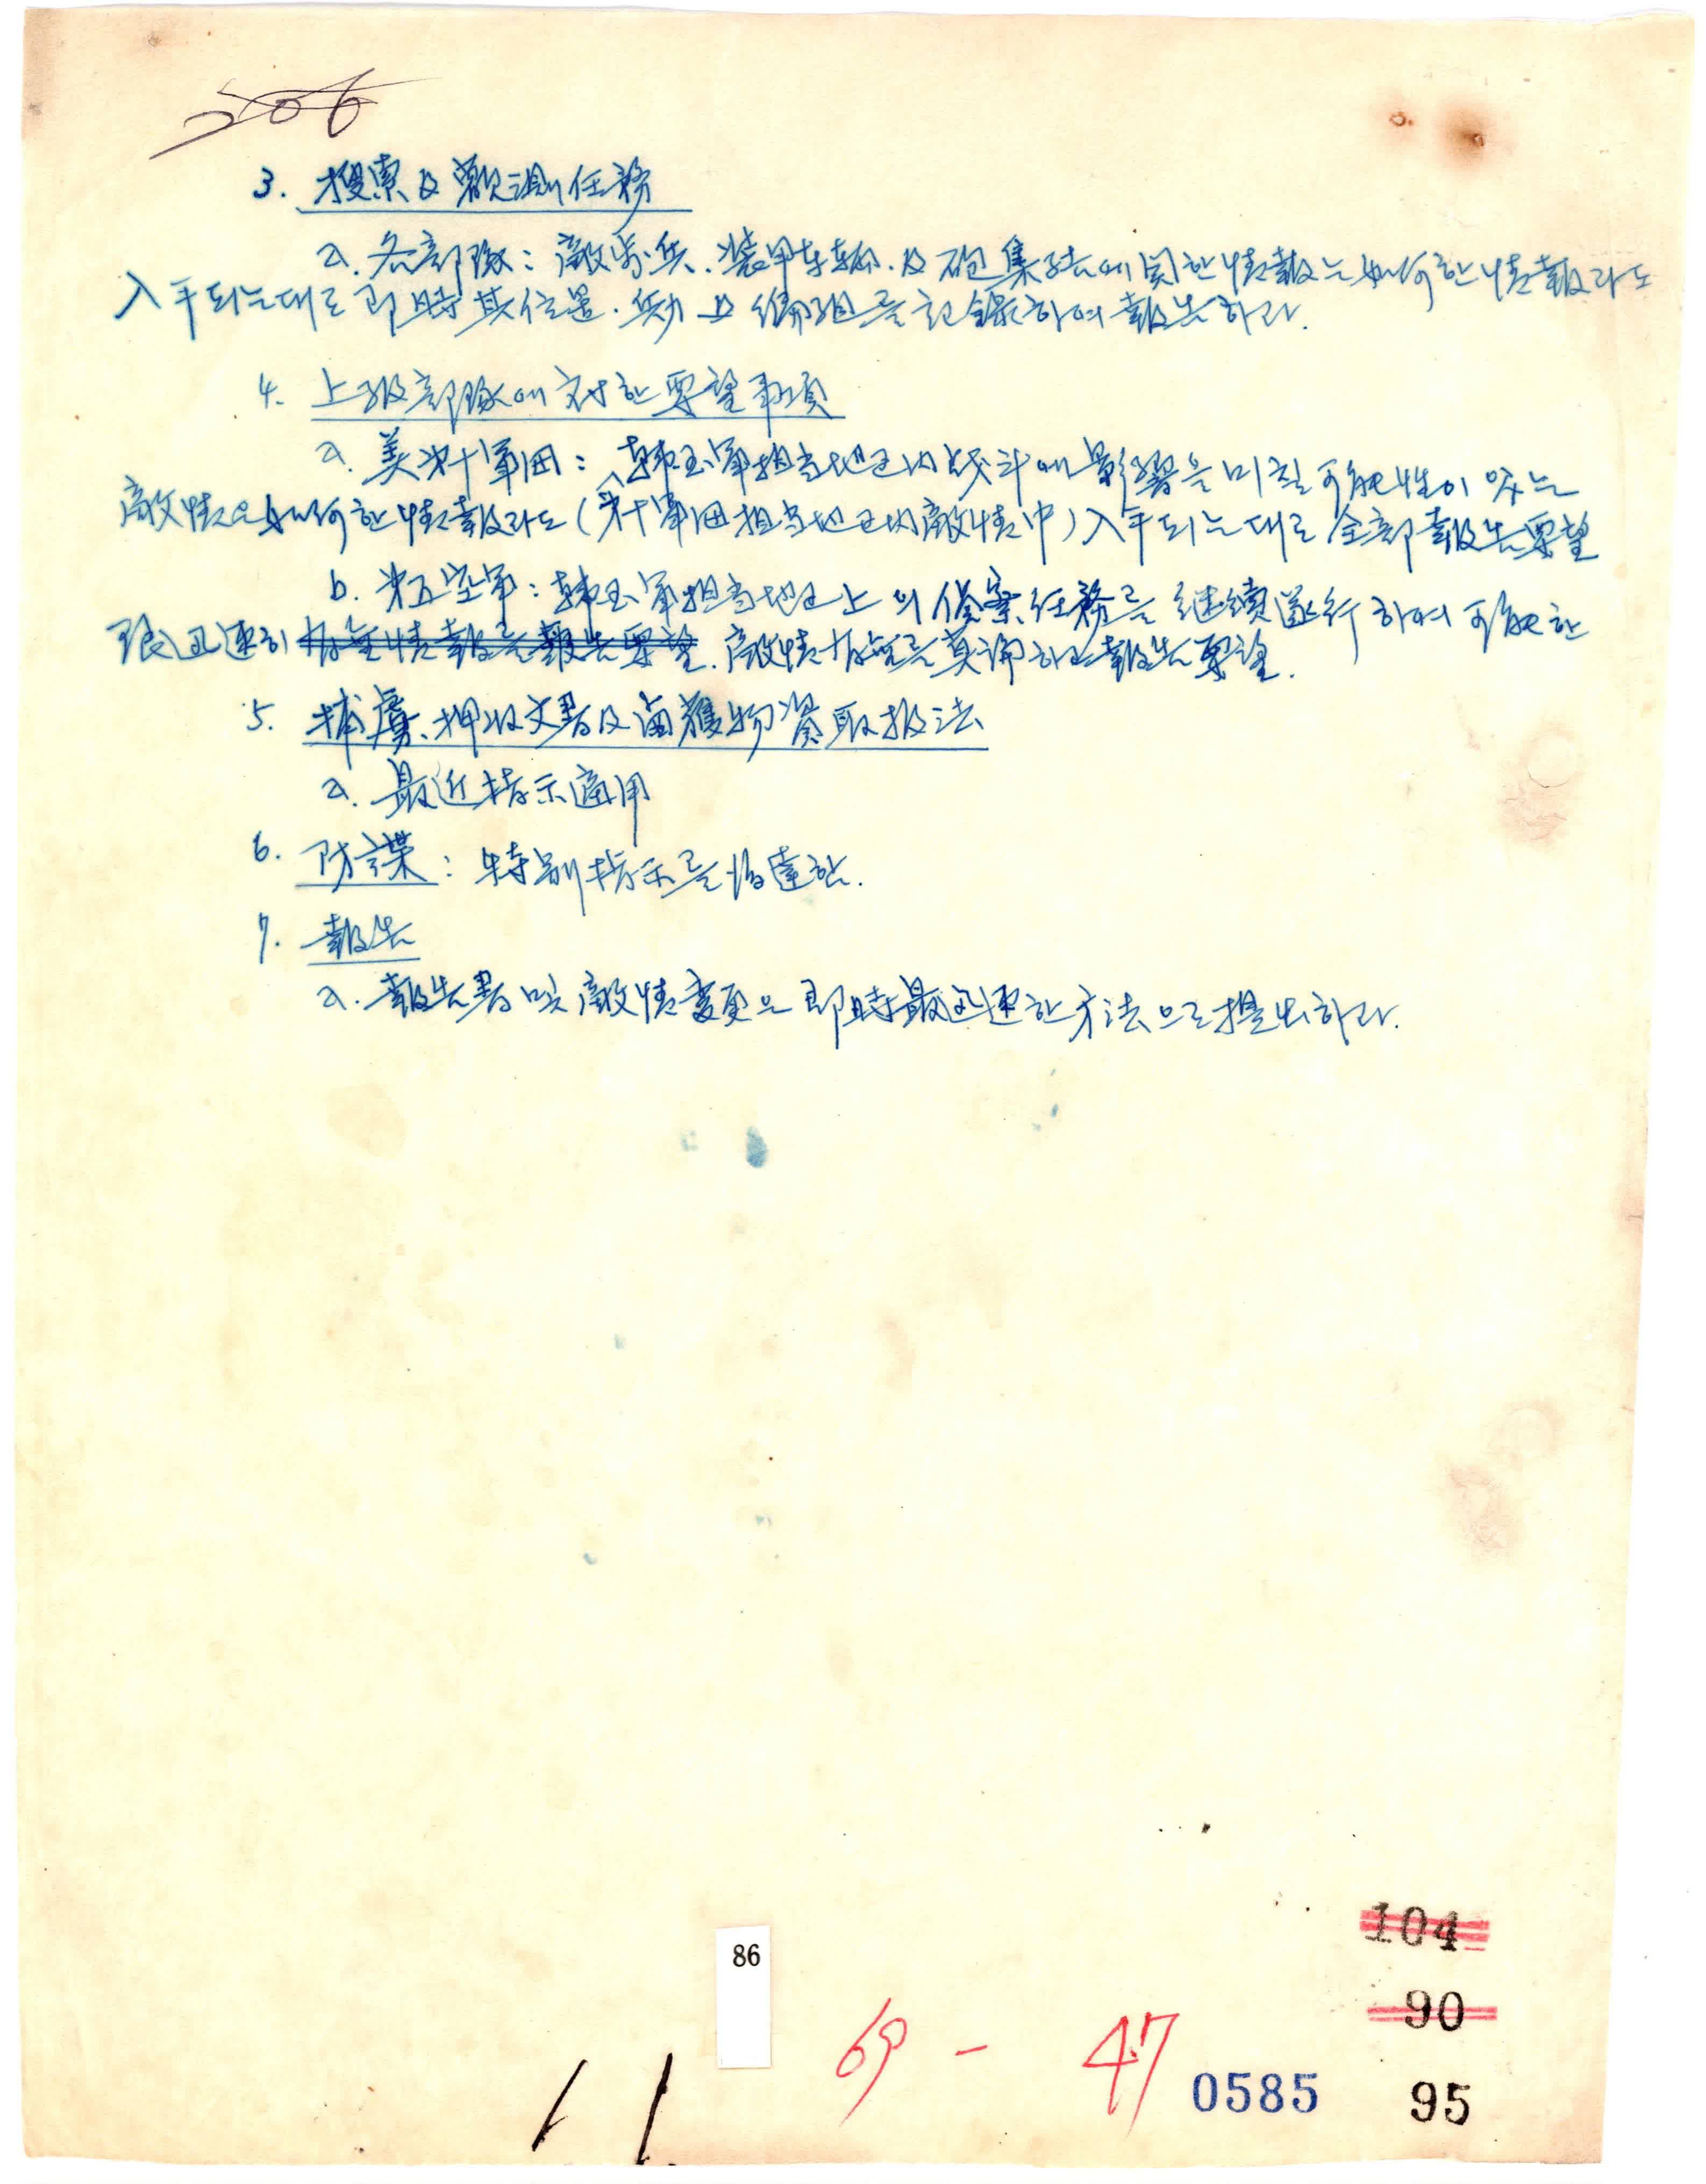 206
3. 搜索 及 觀測 任務
a. 各部隊: 敵步兵. 装甲车輛. 及 砲 集結에 関한 情報는 如何한 情報라도
入手되는대로 即時 其 位置. 兵力 及 編組를 記錄하여 報告하라.
4. 上級部隊에 対한 要望事項
a. 美第十軍団: 韓国軍担当地区内 战斗에 影響을 미칠 可能性이 있는
敵情은 如何한 情報라도 (第十軍団担当地区内敵情中) 入手되는대로 全部 報告要望
b. 第五空军: 韓国军担当地区上의 偵察任務를 继續遂行하여 可能한
限 迅速히 情報를 報告要望. 敵情 를 莫論하고 報告要望.
5. 捕虜. 押收文書及 鹵獲物資取扱法
a. 最近指示適用
6. 防諜: 特別指示를 하달한.
7. 報告
a. 報告書 및 敵情変更은 即時最迅速한 方法으로 提出하라.
86
104
90
69 - 47
0585
95